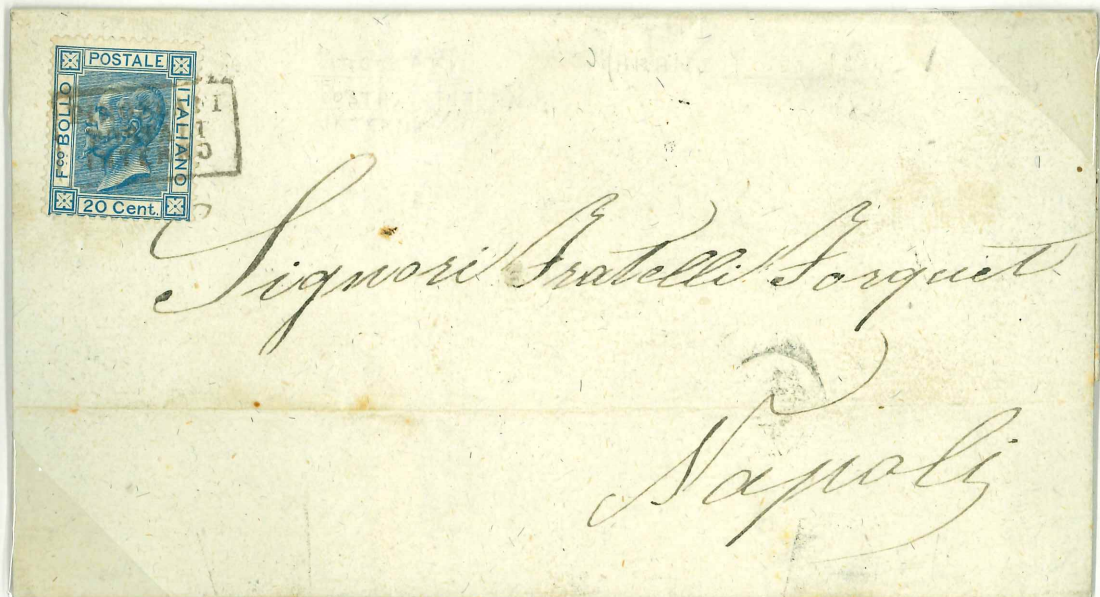 POSTALE
Fco BOLLO
ITALIANO
20 Cent.
Signori Fratelli Forquet
Napoli